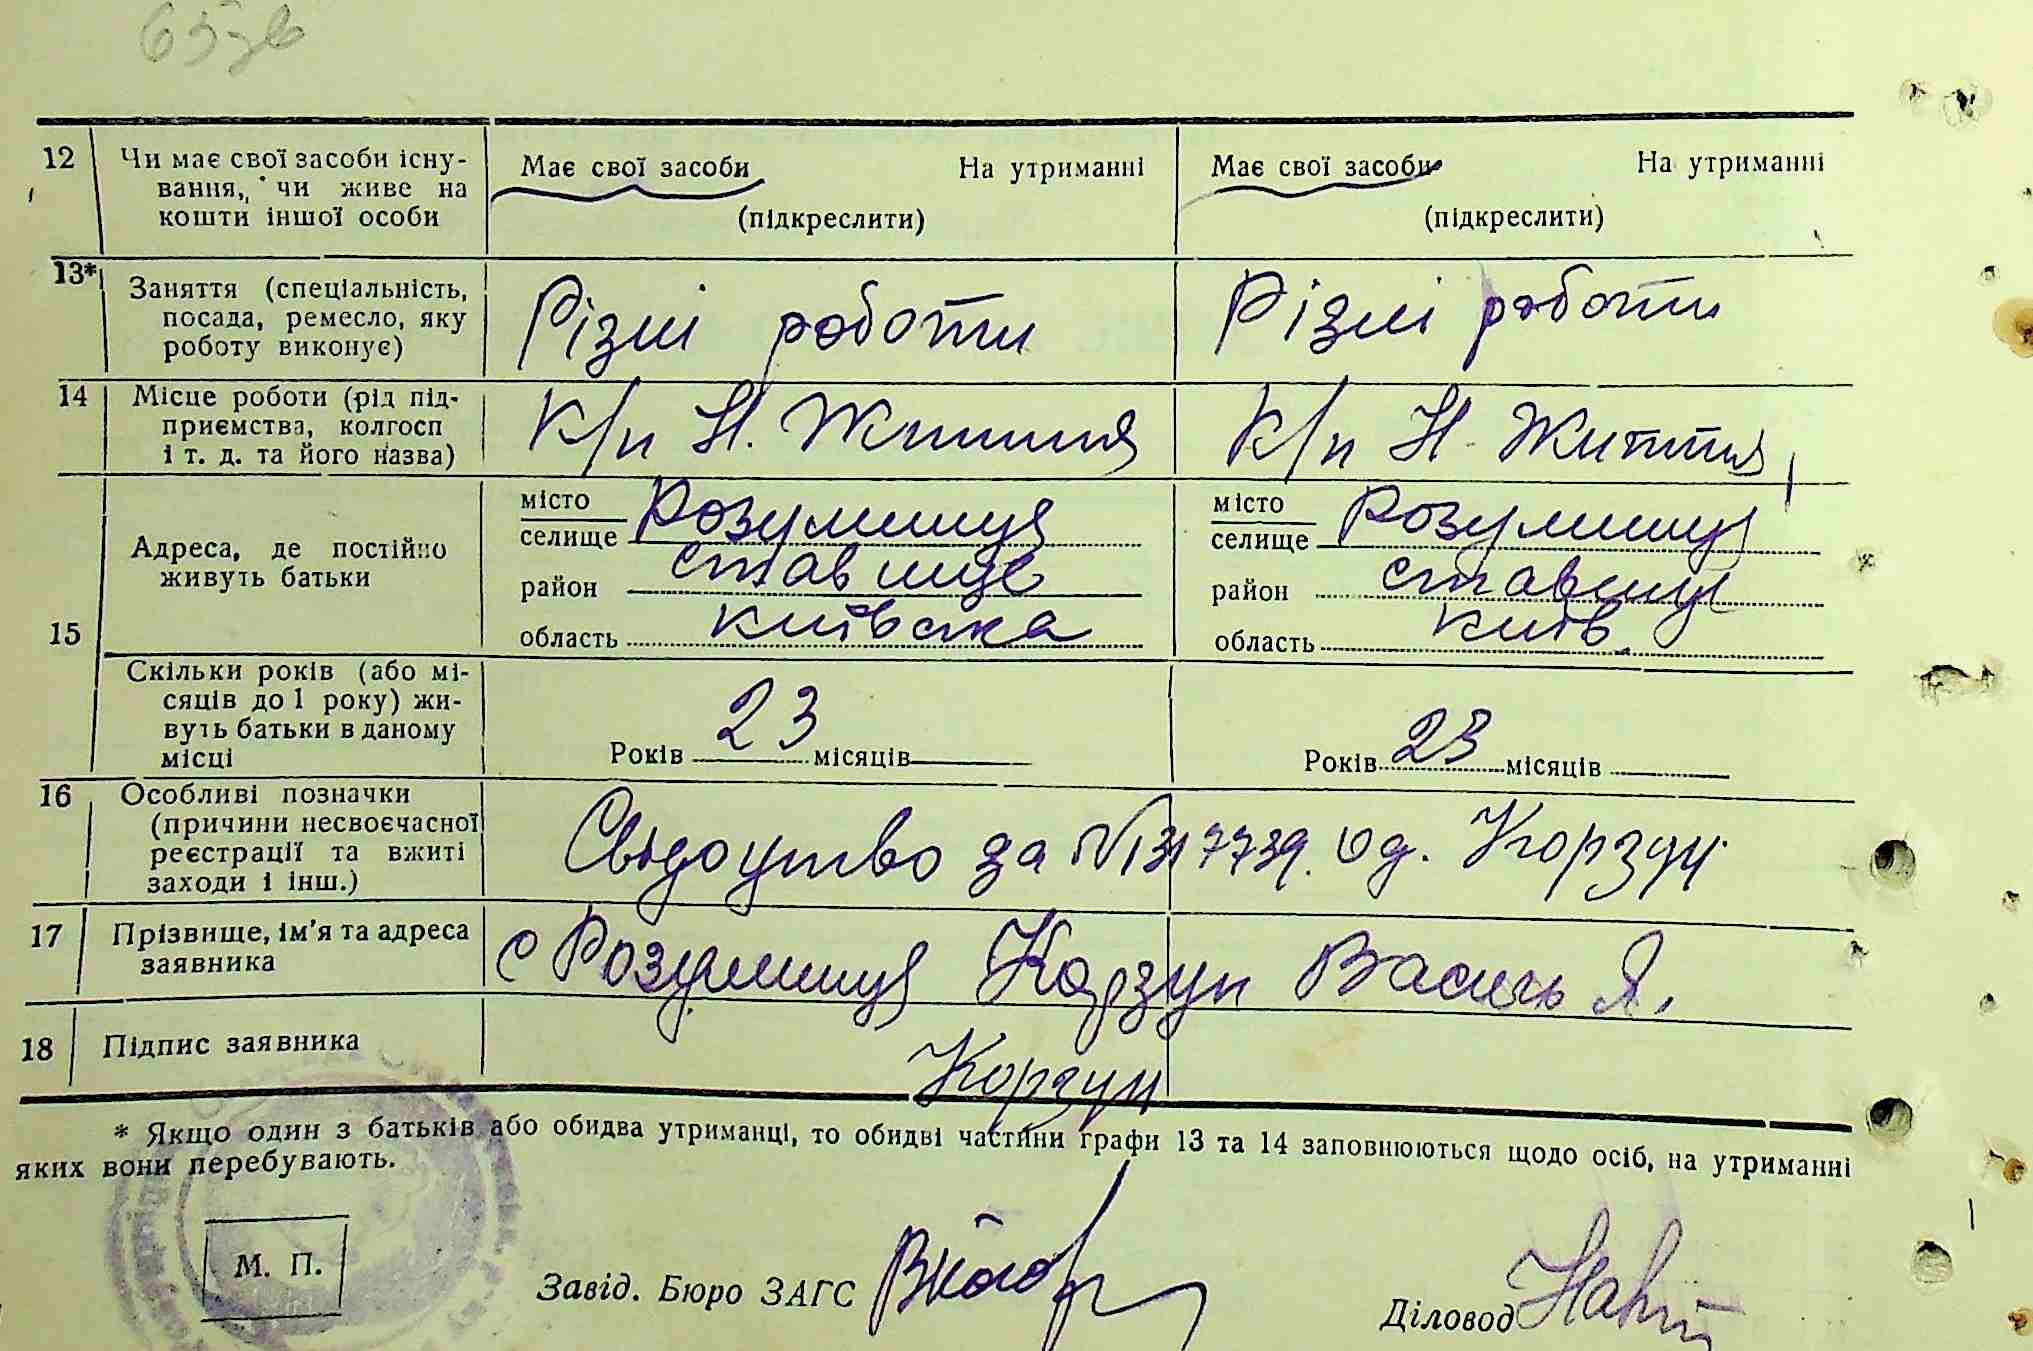 65зв
12 Чи має свої засоби існу-
вання, чи живе на
кошти іншої особи
Має свої засоби На утриманні
(підкреслити)
Має свої засоби На утриманні
(підкреслити)
13* Заняття (спеціальність,
посада, ремесло, яку
роботу виконує)
Різні роботи
Різні роботи
14 Місце роботи (рід під-
приємства, колгосп
і т. д. та його назва)
К/п Н. Життя
К/п Н. Життя
15 Адреса, де постійно
живуть батьки
місто
селище Розумниця
район Ставище
область Київська
місто
селище Розумниця
район Ставище
область Київ.
Скільки років (або мі-
сяців до 1 року) жи-
вуть батьки в даному
місці
Років 23 місяців
Років 23 місяців
16 Особливі позначки
(причини несвоєчасної
реєстрації та вжиті
заходи і інш.)
Свідоцтво за № 317739. од. Корзун
17 Прізвище, ім'я та адреса
заявника
с Розумниця Корзун Василь Я.
18 Підпис заявника
Корзун
* Якщо один з батьків або обидва утриманці, то обидві частини графи 13 та 14 заповнюються щодо осіб, на утриманні
яких вони перебувають.
М. П.
Завід. Бюро ЗАГС
Діловод